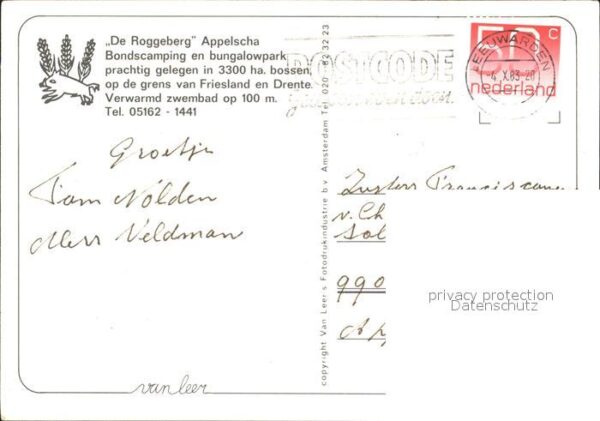 „De Roggeberg" Appelscha
Bondscamping en bungalowpark
prachtig gelegen in 3300 ha. bossen,
op de grens van Friesland en Drente.
Verwarmd zwembad op 100 m.
Tel. 05162 - 1441
POSTCODE
LEEUWARDEN
X.83
50 C
nederland
Groetje
Tom Nolden
Mevr Veldman
copyright Van Leer's Fotodrukindustrie b.v. Amsterdam Tel. 020 - 23 23
Zusters Franciscan
v. Ch
Sol
990
Ap
privacy protection
Datenschutz
van leer